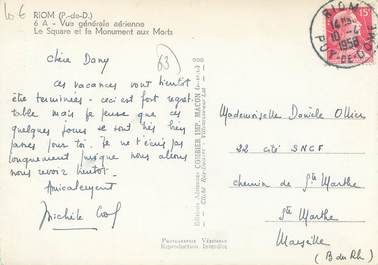 10 €
RIOM (P.-de-D.)
6 A - Vue générale aérienne
Le Square et le Monument aux Morts
63
Chère Dany
les vacances vont bientôt
être terminées - ceci est fort regret
table mais je pense que ces
quelques jours se sont très bien
passés pour toi. je ne t'écris pas
longuement puisque nous allons
nous revoir bientôt -
Amicalement
Michèle
Editions Aériennes COMBIER IMP. MACON
PHOTOGRAPHIE VÉRITABLE
Reproduction Interdite
RIOM
10-4
1958
PUY-DE-DOME
15F
Mademoiselle Danièle Ollier
22 cité SNCF
chemin de Ste Marthe
Ste Marthe
Marseille
(B du Rh)